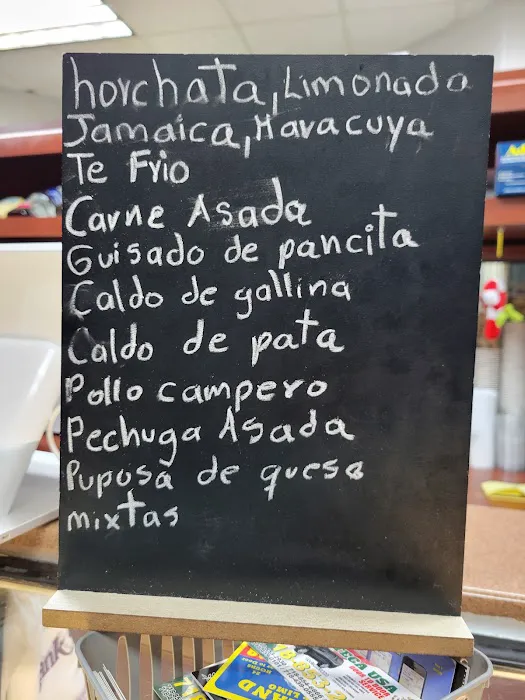 horchata, Limonada
Jamaica, Maracuya
Te Frio
Carne Asada
Guisado de pancita
Caldo de gallina
Caldo de pata
Pollo campero
Pechuga Asada
Puposa de quesa
mixtas